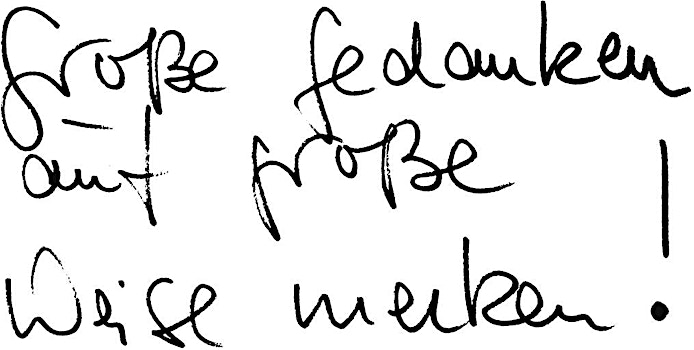 Große Gedanken
auf große
Weise merken!